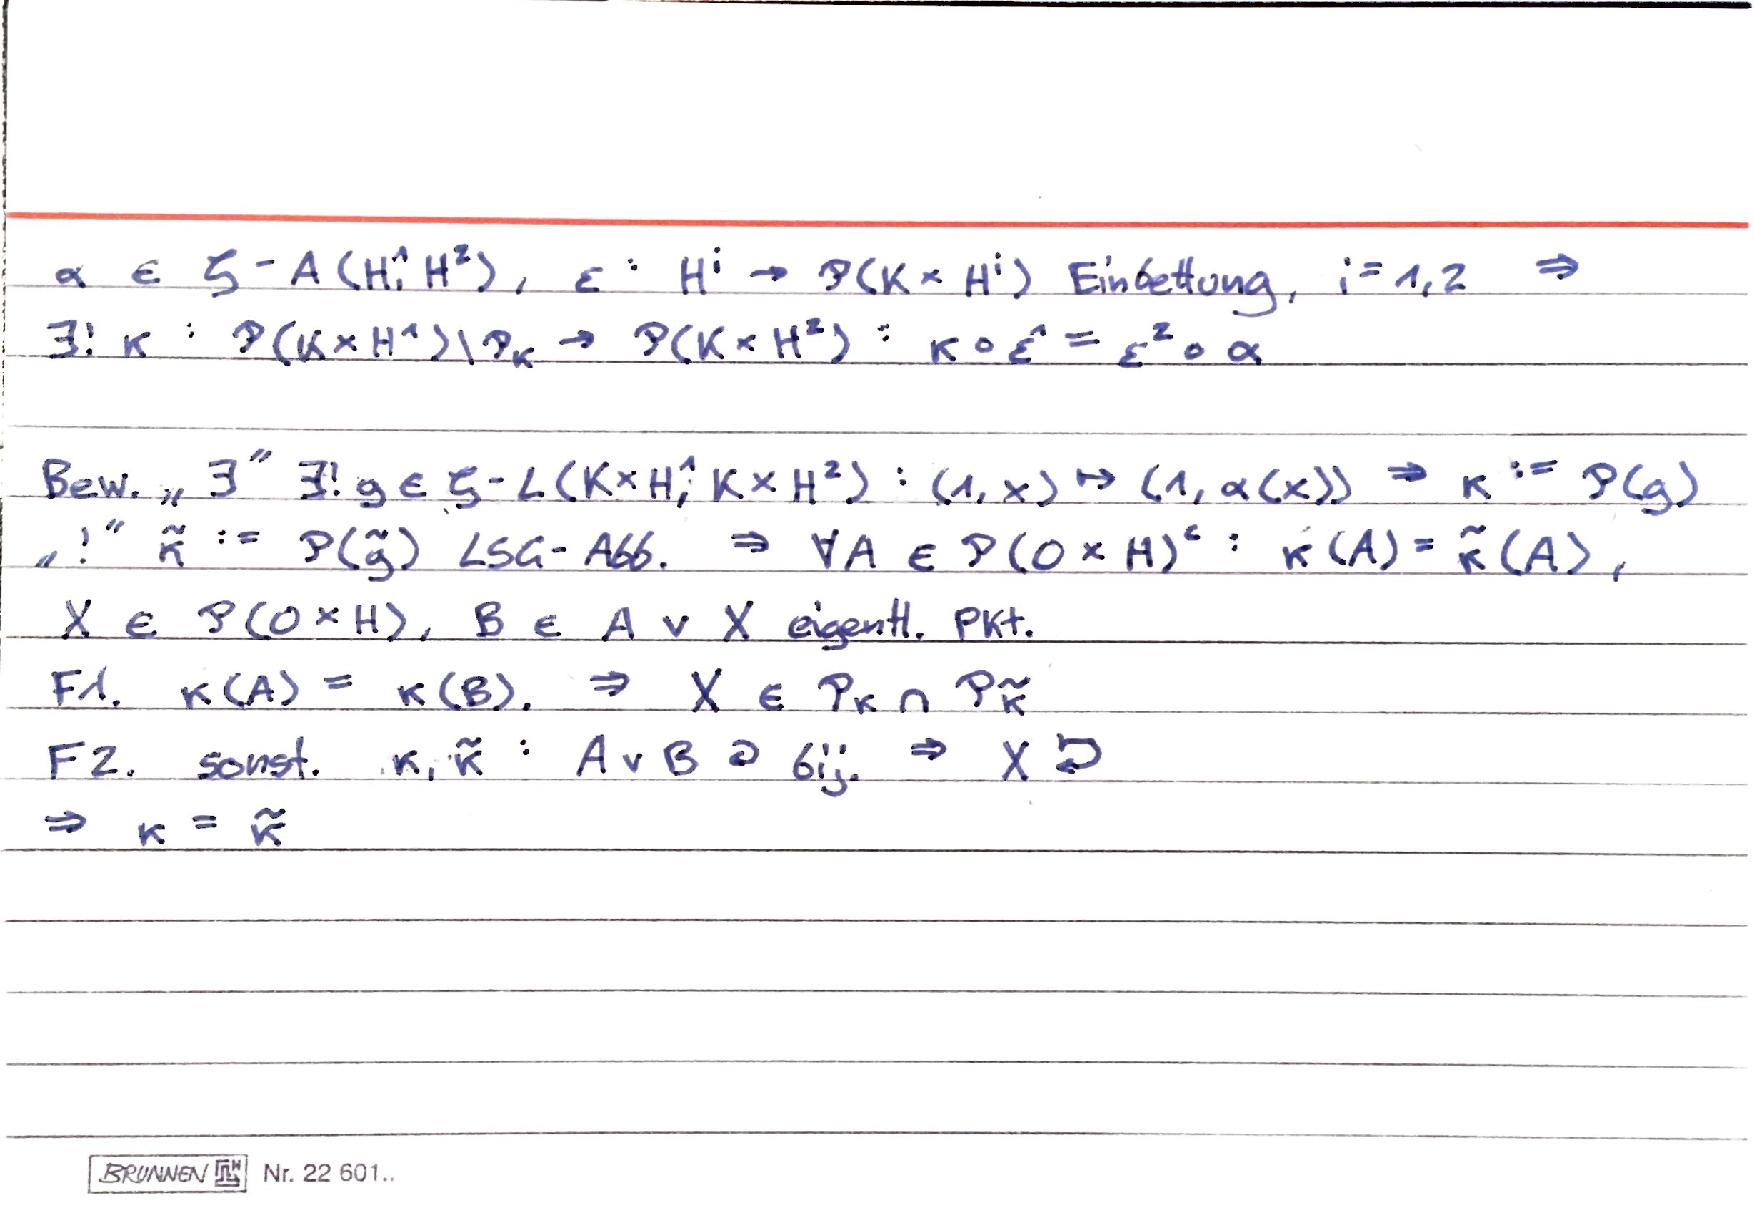 α ∈ ζ-A(H¹, H²), ε : Hⁱ → P(K × Hⁱ) Einbettung, i = 1,2 ⇒
∃! κ : P(K × H¹) \ P_κ → P(K × H²) : κ ∘ ε¹ = ε² ∘ α
Bew. „∃“ ∃! g ∈ ζ-L(K × H¹, K × H²) : (1, x) ↦ (1, α(x)) ⇒ κ := P(g)
„!“ κ̃ := P(g̃) LSG-Abb. ⇒ ∀A ∈ P(O × H)ᶜ : κ(A) = κ̃(A),
X ∈ P(O × H), B ∈ A ∨ X eigentl. Pkt.
F1. κ(A) = κ(B). ⇒ X ∈ P_κ ∩ P_κ̃
F2. sonst. κ, κ̃ : A ∨ B ⊋ bij. ⇒ X ⮌
⇒ κ = κ̃
BRUNNEN Nr. 22 601..